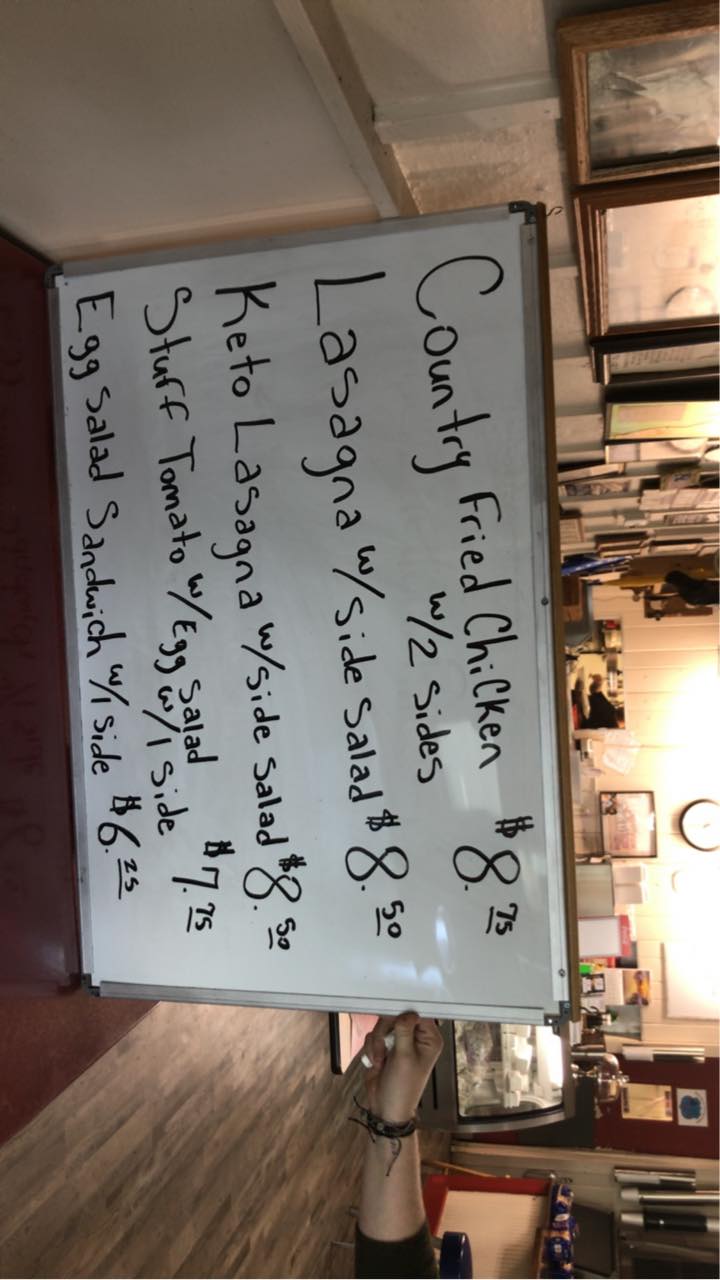 Country Fried Chicken $8.75
w/2 sides
Lasagna w/side salad $8.50
Keto Lasagna w/side salad $8.50
Stuff Tomato w/Egg salad
w/1 side $7.75
Egg salad Sandwich w/1 side $6.25